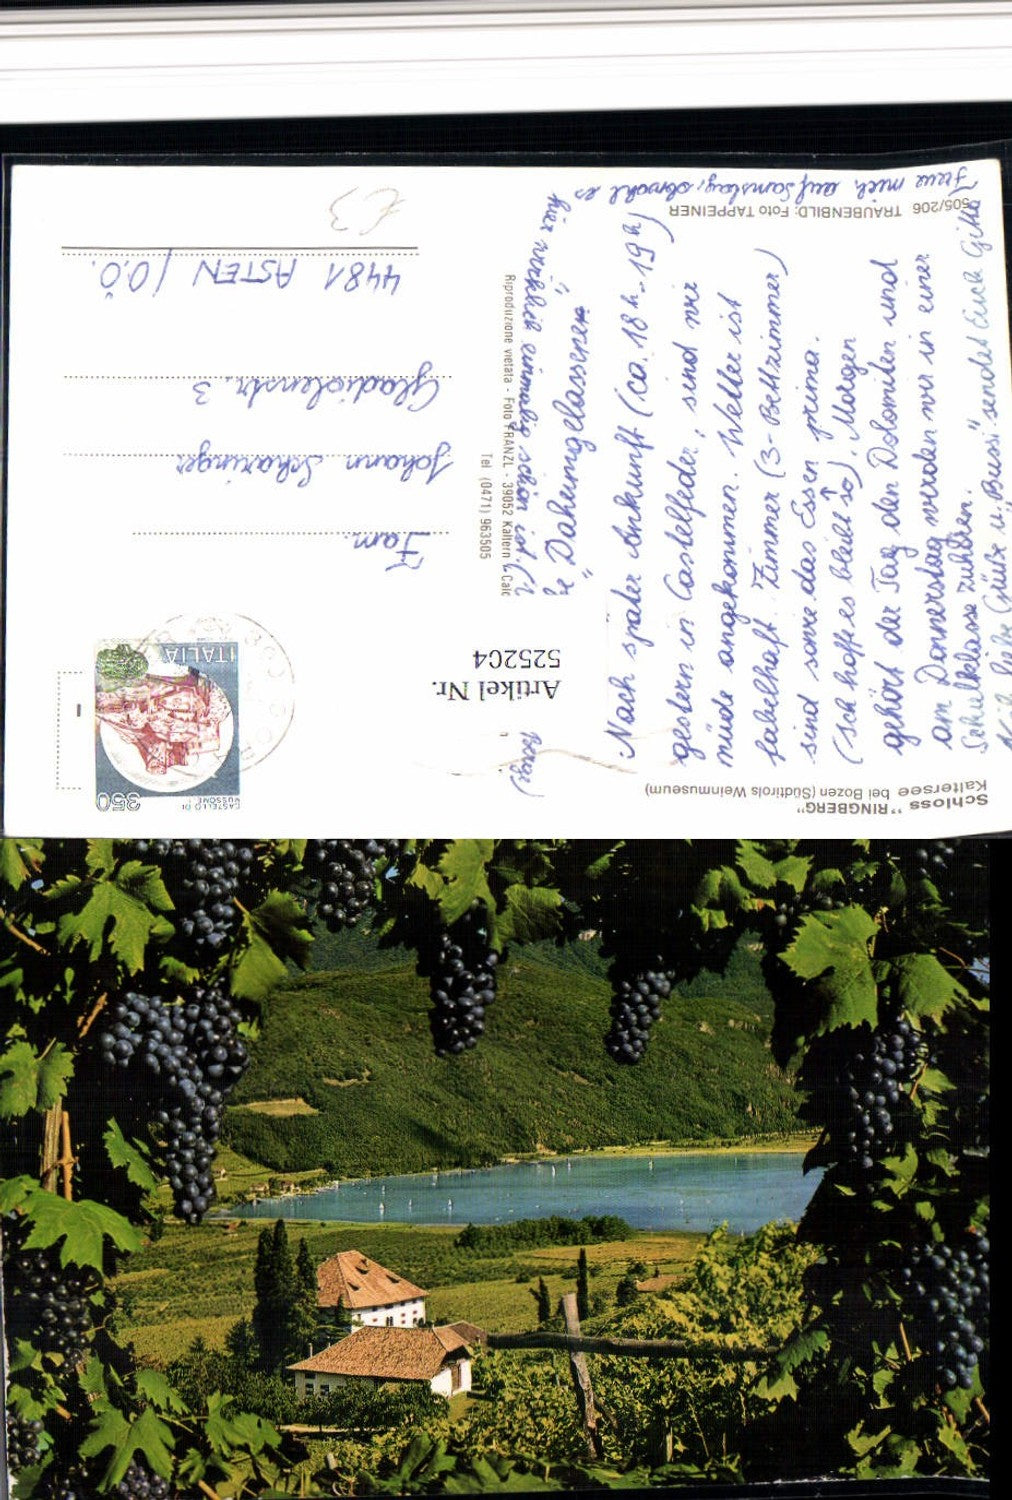 Schloss "RINGBERG"
Kalterersee bei Bozen (Südtirols Weinmuseum)
Nach später Ankunft (ca. 18 h - 19 h)
gestern in Castelfeder, sind wir
müde angekommen. Wetter ist
fabelhaft. Zimmer (3-Bettzimmer)
sind sowie das Essen prima.
(Ich hoffe es bleibt so). Morgen
gehört der Tag den Dolomiten und
am Donnerstag werden wir in einer
Schulklasse zuhören.
liebe Grüße u. "Bussi" sendet Euch Gitta
Freue mich auf Samstag, obwohl es
hier wirklich einmalig schön ist. (Ihr
"Daheimgelassenen"
505/206 TRAUBENBILD: Foto TAPPEINER
Riproduzione vietata - Foto FRANZL - 39052 Kaltern
Tel. (0471) 963505
Artikel Nr.
525204
CASTELLO DI
MUSSOMELI
350
ITALIA
Fam.
Johann Scharinger
Gladiolenstr. 3
4481 ASTEN / O.Ö.
€3